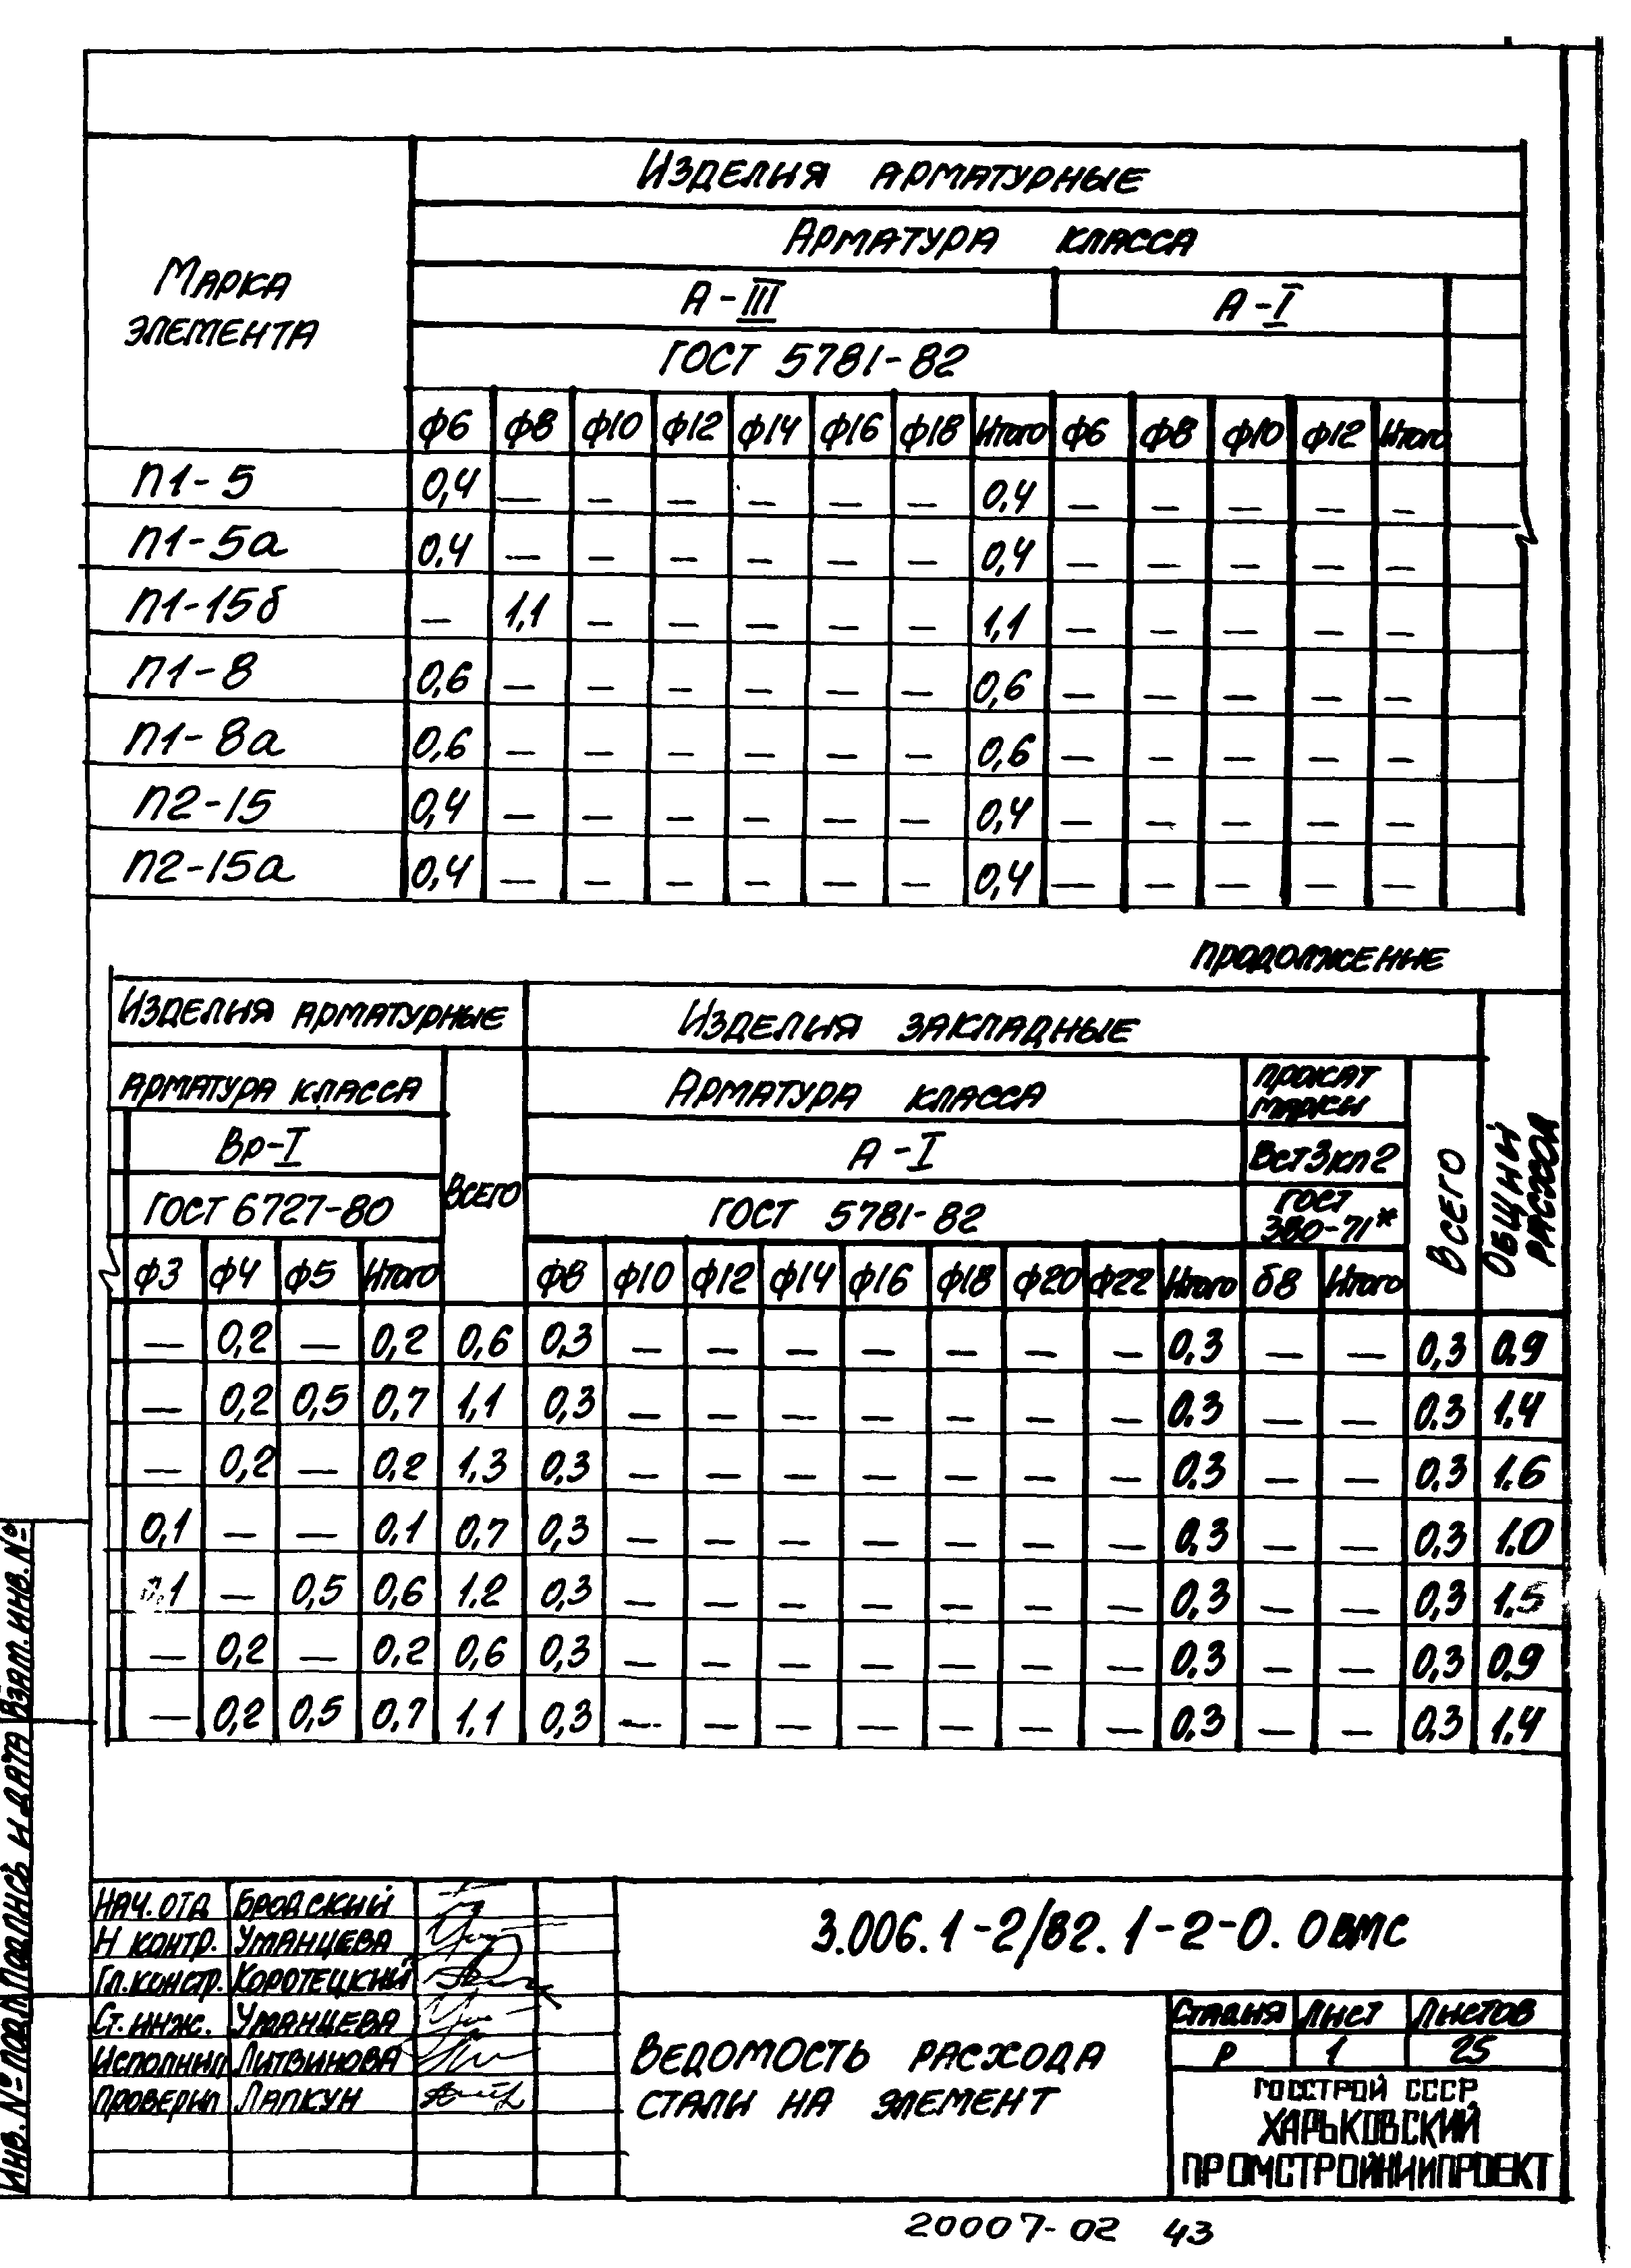 Изделия арматурные
Арматура класса
Марка элемента
А-III А-I
ГОСТ 5781-82
ф6 ф8 ф10 ф12 ф14 ф16 ф18 Итого ф6 ф8 ф10 ф12 Итого
П1-5 0,4 — — — — — — 0,4 — — — — —
П1-5а 0,4 — — — — — — 0,4 — — — — —
П1-15б — 1,1 — — — — — 1,1 — — — — —
П1-8 0,6 — — — — — — 0,6 — — — — —
П1-8а 0,6 — — — — — — 0,6 — — — — —
П2-15 0,4 — — — — — — 0,4 — — — — —
П2-15а 0,4 — — — — — — 0,4 — — — — —
продолжение
Изделия арматурные Изделия закладные Общий расход
Арматура класса Всего Арматура класса прокат марки Всего
Вр-I А-I Вст3кп2
ГОСТ 6727-80 ГОСТ 5781-82 ГОСТ 380-71*
ф3 ф4 ф5 Итого ф8 ф10 ф12 ф14 ф16 ф18 ф20 ф22 Итого δ8 Итого
— 0,2 — 0,2 0,6 0,3 — — — — — — — 0,3 — — 0,3 0,9
— 0,2 0,5 0,7 1,1 0,3 — — — — — — — 0.3 — — 0.3 1.4
— 0,2 — 0,2 1,3 0,3 — — — — — — — 0.3 — — 0.3 1.6
0,1 — — 0,1 0,7 0,3 — — — — — — — 0,3 — — 0,3 1.0
0,1 — 0,5 0,6 1.2 0,3 — — — — — — — 0,3 — — 0,3 1.5
— 0,2 — 0,2 0,6 0,3 — — — — — — — 0.3 — — 0,3 0,9
— 0,2 0,5 0,7 1,1 0,3 — — — — — — — 0.3 — — 0,3 1.4
Инв. № подл Подпись и дата Взам. инв. №
Нач. отд Бродский
Н контр. Уманцева
Гл. констр. Коротецкий
Ст. инж. Уманцева
Исполнил Литвинова
Проверил Лапкун
3.006.1-2/82.1-2-0.0ВМС
Ведомость расхода
стали на элемент
Стадия Лист Листов
Р 1 25
ГОССТРОЙ СССР
ХАРЬКОВСКИЙ
ПРОМСТРОЙНИИПРОЕКТ
20007-02 43